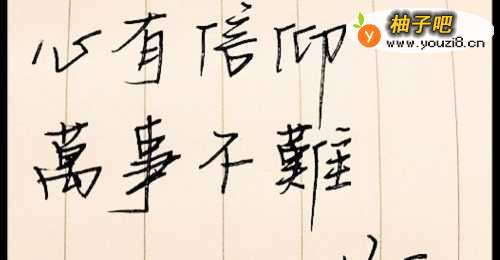 心有信仰
萬事不難
柚子吧
www.youzi8.cn